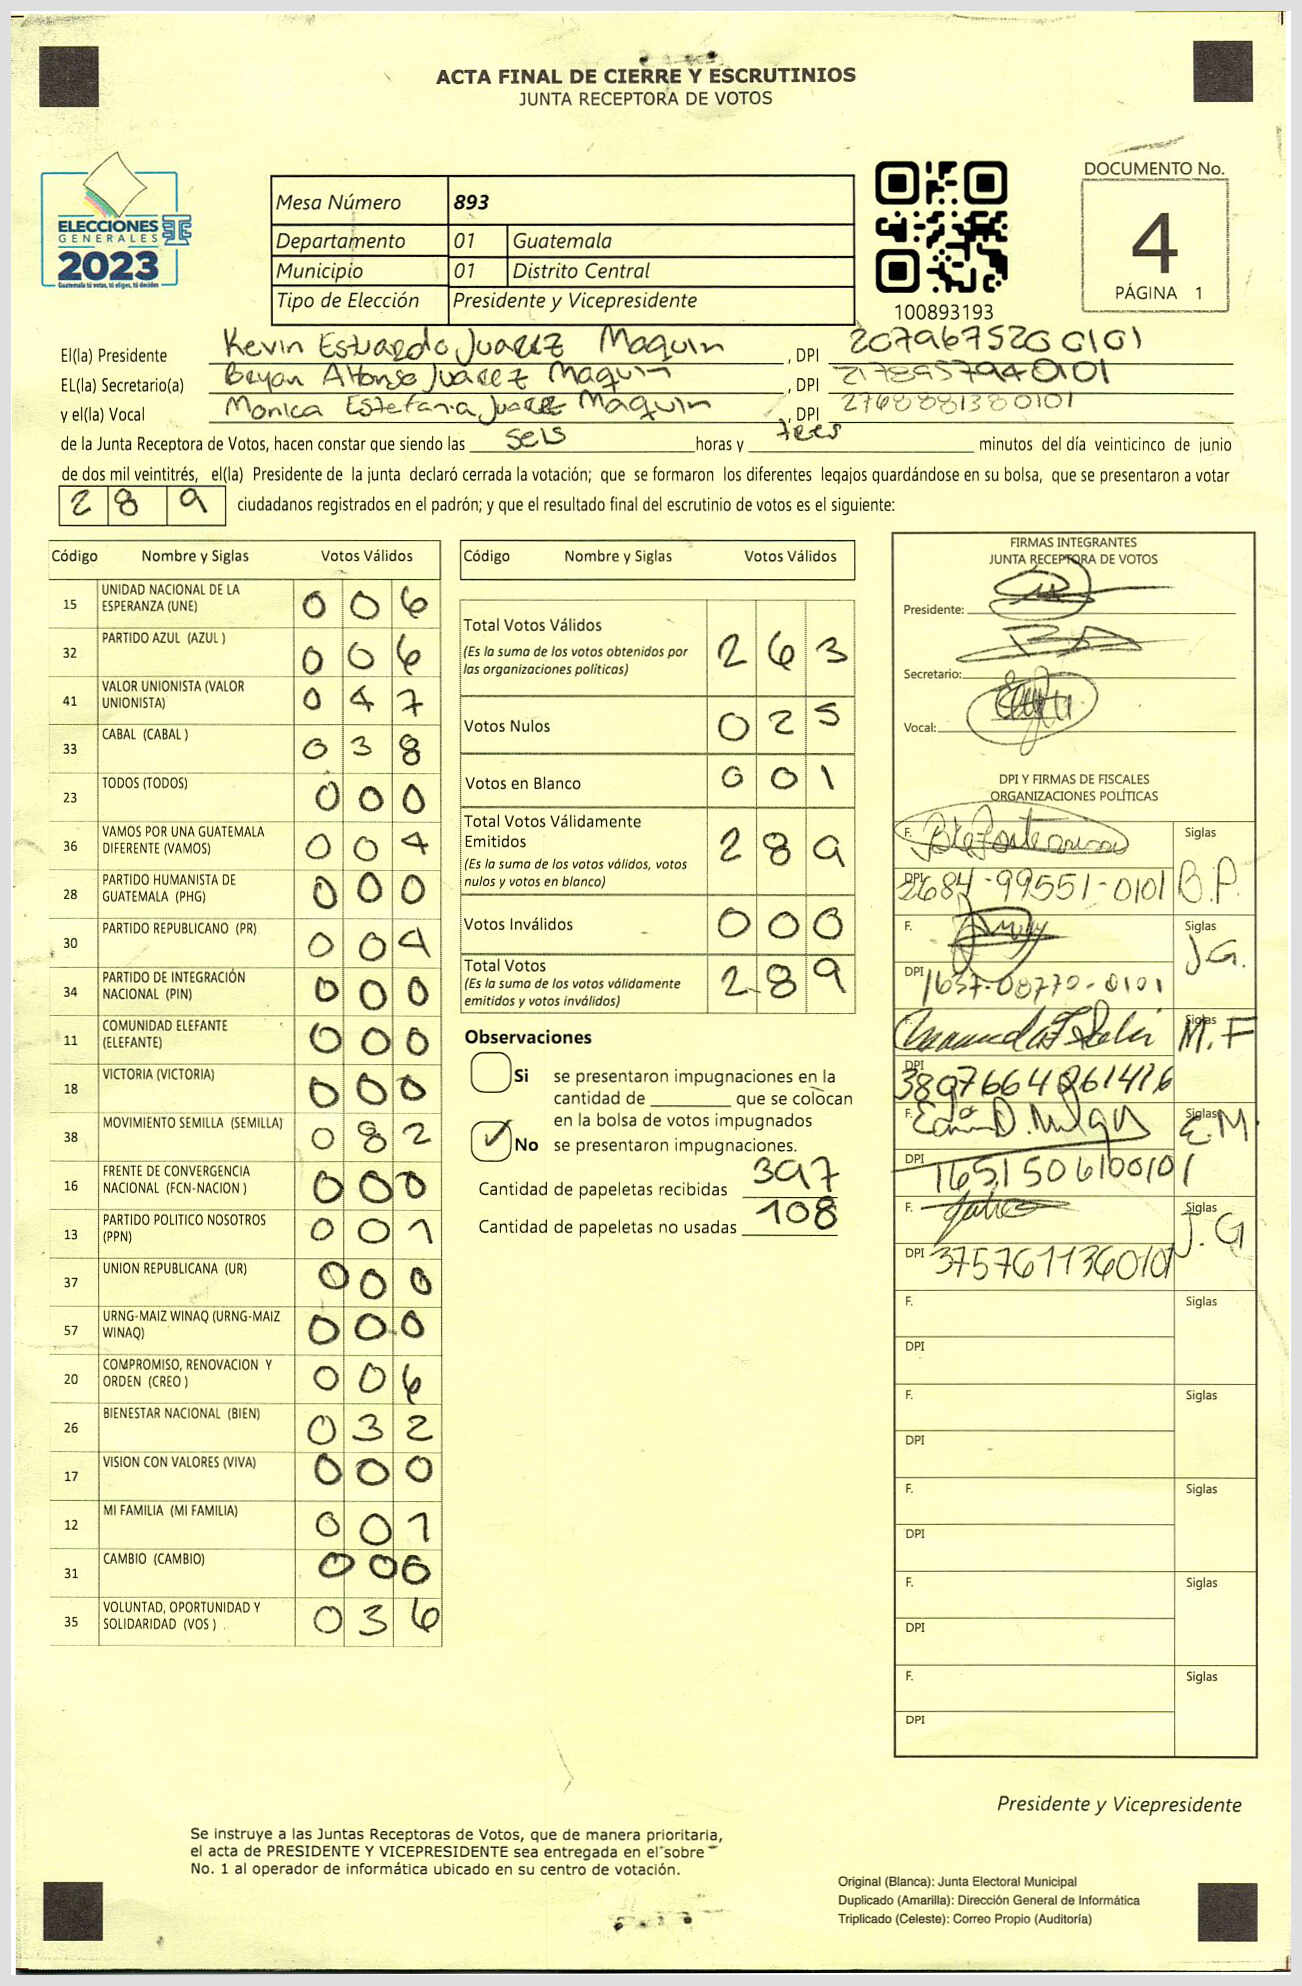 ACTA FINAL DE CIERRE Y ESCRUTINIOS
JUNTA RECEPTORA DE VOTOS
ELECCIONES
GENERALES
2023
Guatemala tú votas, tú eliges, tú decides
Mesa Número 893
Departamento 01 Guatemala
Municipio 01 Distrito Central
Tipo de Elección Presidente y Vicepresidente
100893193
DOCUMENTO No.
4
PÁGINA 1
El(la) Presidente Kevin Estuardo Juarez Maquin, DPI 2079675200101
EL(la) Secretario(a) Bryan Alfonso Juarez Maquin, DPI 2178957940101
y el(la) Vocal Monica Estefania Juarez Maquin, DPI 2768881380101
de la Junta Receptora de Votos, hacen constar que siendo las seis horas y tres minutos del día veinticinco de junio
de dos mil veintitrés, el(la) Presidente de la junta declaró cerrada la votación; que se formaron los diferentes legajos guardándose en su bolsa, que se presentaron a votar
289 ciudadanos registrados en el padrón; y que el resultado final del escrutinio de votos es el siguiente:
Código Nombre y Siglas Votos Válidos
15 UNIDAD NACIONAL DE LA ESPERANZA (UNE) 006
32 PARTIDO AZUL (AZUL ) 006
41 VALOR UNIONISTA (VALOR UNIONISTA) 047
33 CABAL (CABAL ) 038
23 TODOS (TODOS) 000
36 VAMOS POR UNA GUATEMALA DIFERENTE (VAMOS) 004
28 PARTIDO HUMANISTA DE GUATEMALA (PHG) 000
30 PARTIDO REPUBLICANO (PR) 004
34 PARTIDO DE INTEGRACIÓN NACIONAL (PIN) 000
11 COMUNIDAD ELEFANTE (ELEFANTE) 000
18 VICTORIA (VICTORIA) 000
38 MOVIMIENTO SEMILLA (SEMILLA) 082
16 FRENTE DE CONVERGENCIA NACIONAL (FCN-NACION ) 000
13 PARTIDO POLITICO NOSOTROS (PPN) 001
37 UNION REPUBLICANA (UR) 000
57 URNG-MAIZ WINAQ (URNG-MAIZ WINAQ) 000
20 COMPROMISO, RENOVACION Y ORDEN (CREO ) 006
26 BIENESTAR NACIONAL (BIEN) 032
17 VISION CON VALORES (VIVA) 000
12 MI FAMILIA (MI FAMILIA) 001
31 CAMBIO (CAMBIO) 000
35 VOLUNTAD, OPORTUNIDAD Y SOLIDARIDAD (VOS ) 036
Código Nombre y Siglas Votos Válidos
Total Votos Válidos 263
(Es la suma de los votos obtenidos por
las organizaciones politicas)
Votos Nulos 025
Votos en Blanco 001
Total Votos Válidamente
Emitidos 289
(Es la suma de los votos válidos, votos
nulos y votos en blanco)
Votos Inválidos 000
Total Votos 289
(Es la suma de los votos válidamente
emitidos y votos inválidos)
Observaciones
Si se presentaron impugnaciones en la
cantidad de ________ que se colocan
en la bolsa de votos impugnados
✓ No se presentaron impugnaciones.
Cantidad de papeletas recibidas 397
Cantidad de papeletas no usadas 108
FIRMAS INTEGRANTES
JUNTA RECEPTORA DE VOTOS
Presidente:
Secretario:
Vocal:
DPI Y FIRMAS DE FISCALES
ORGANIZACIONES POLÍTICAS
F. Siglas B.P.
DPI 2684-99551-0101
F. Siglas J.G.
DPI 1637-08770-0101
F. Siglas M.F
DPI 3897664261416
F. Siglas E.M.
DPI 1651506100101
F. Siglas J.G
DPI 3757611360101
F. Siglas
DPI
F. Siglas
DPI
F. Siglas
DPI
F. Siglas
DPI
F. Siglas
DPI
Presidente y Vicepresidente
Se instruye a las Juntas Receptoras de Votos, que de manera prioritaria,
el acta de PRESIDENTE Y VICEPRESIDENTE sea entregada en el sobre
No. 1 al operador de informática ubicado en su centro de votación.
Original (Blanca): Junta Electoral Municipal
Duplicado (Amarilla): Dirección General de Informática
Triplicado (Celeste): Correo Propio (Auditoría)